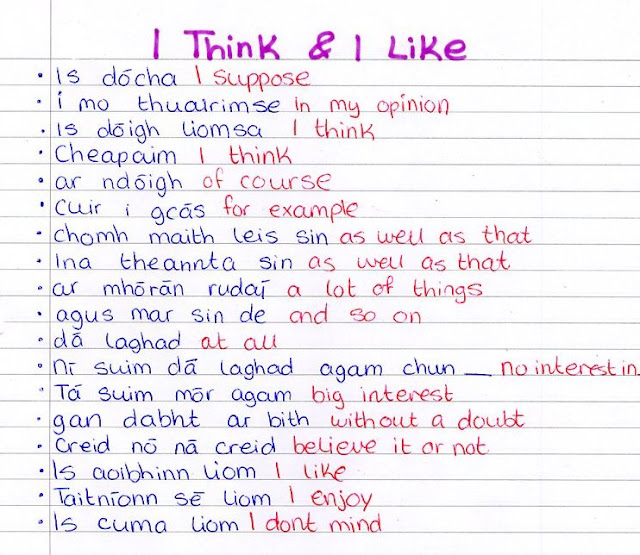 I Think & I Like
• Is dócha I suppose
• í mo thuairimse in my opinion
• Is dóigh liomsa I think
• Cheapaim I think
• ar ndóigh of course
• Cuir i gcás for example
• chomh maith leis sin as well as that
• Ina theannta sin as well as that
• ar mhórán rudaí a lot of things
• agus mar sin de and so on
• dá laghad at all
• ní suim dá laghad agam chun __ no interest in
• Tá suim mór agam big interest
• gan dabht ar bith without a doubt
• Creid nó ná creid believe it or not
• Is aoibhinn liom I like
• Taitníonn sé liom I enjoy
• Is cuma liom I dont mind